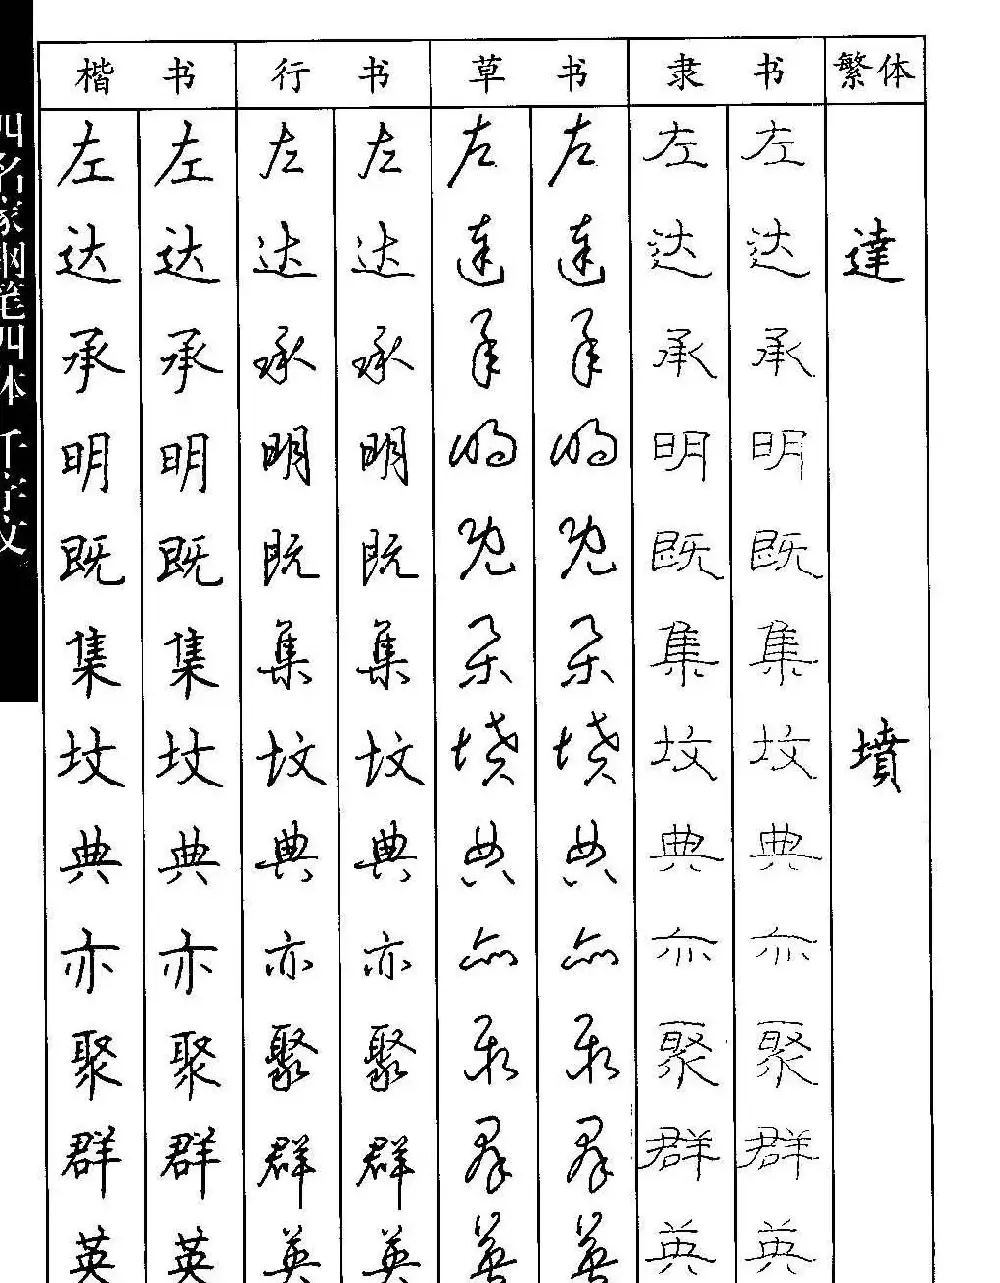 四名家钢笔四体 千字文
楷书 行书 草书 隶书 繁体
左 左 左 左 左 左 左 左
达 达 达 达 達 達 达 达 達
承 承 承 承 承 承 承 承
明 明 明 明 明 明 明 明
既 既 既 既 既 既 既 既
集 集 集 集 集 集 集 集
坟 坟 坟 坟 墳 墳 坟 坟 墳
典 典 典 典 典 典 典 典
亦 亦 亦 亦 亦 亦 亦 亦
聚 聚 聚 聚 聚 聚 聚 聚
群 群 群 群 群 群 群 群
英 英 英 英 英 英 英 英